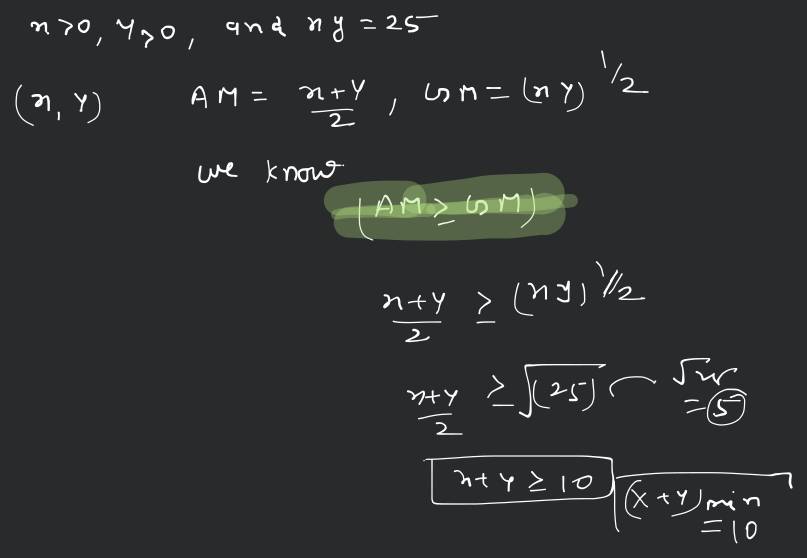 x > 0, y > 0, and xy = 25
(x, y) AM = \frac{x+y}{2}, GM = (xy)^{1/2}
we know
(AM ≥ GM)
\frac{x+y}{2} ≥ (xy)^{1/2}
\frac{x+y}{2} ≥ \sqrt{(25)} = 5
x+y ≥ 10 (x+y)min = 10